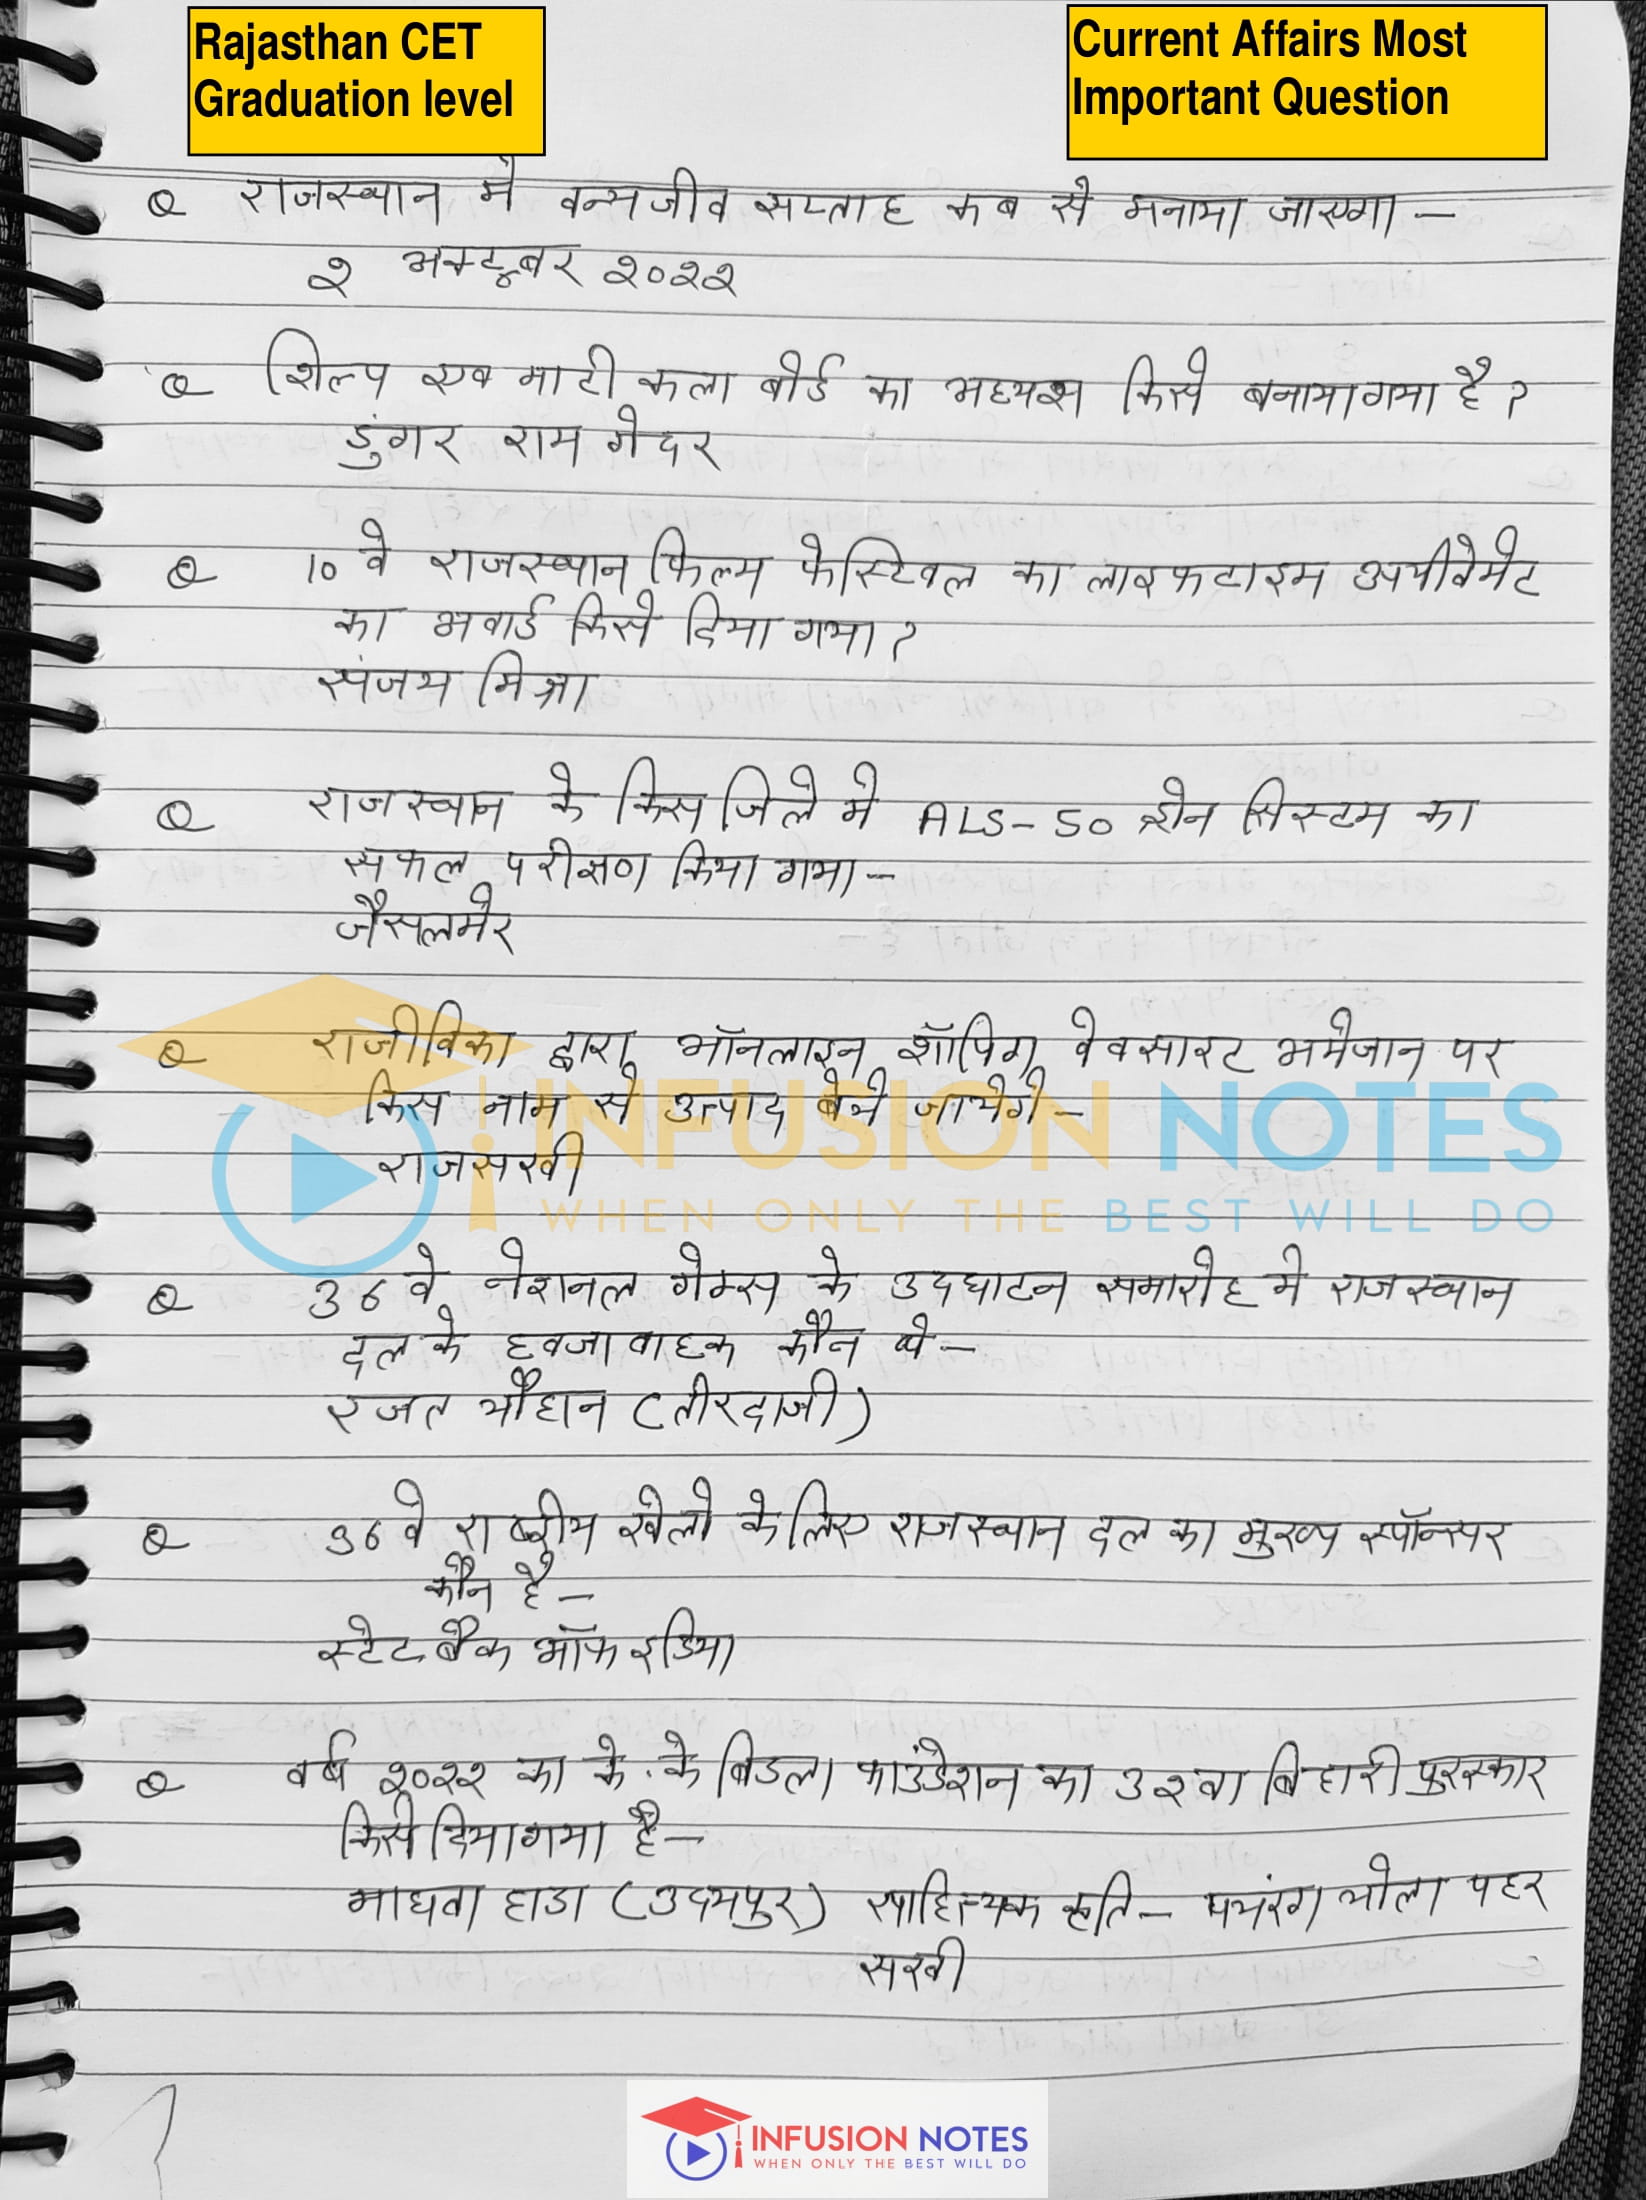 Rajasthan CET
Graduation level
Current Affairs Most
Important Question
Q राजस्थान मे वन्यजीव सप्ताह कब से मनाया जाएगा –
२ अक्टूबर २०२२
Q शिल्प एव माटी कला बोर्ड का अध्यक्ष किसे बनाया गया है ?
डुंगर राम गेदर
Q 10 वे राजस्थान फिल्म फेस्टिवल का लाइफटाइम अचीवेमेट
का अवार्ड किसे दिया गया ?
संजय मिश्रा
Q राजस्थान के किस जिले मे ALS-50 ड्रोन सिस्टम का
सफल परीक्षण किया गया –
जैसलमेर
Q राजीविका द्वारा ऑनलाइन शॉपिग वेबसाइट अमेजान पर
किस नाम से उत्पाद बेचे जायेगे –
राजसखी
INFUSION NOTES
WHEN ONLY THE BEST WILL DO
Q ३६ वे नेशनल गेम्स के उदघाटन समारोह मे राजस्थान
दल के ध्वजावाहक कौन थे –
रजत चौहान (तीरदाजी)
Q ३६ वे राष्ट्रीय खेलो के लिए राजस्थान दल का मुख्य स्पॉन्सर
कौन है –
स्टेट बैंक ऑफ इडिया
Q वर्ष २०२२ का के. के बिडला फाउंडेशन का ३२वा बिहारी पुरस्कार
किसे दिया गया है –
माधव हाडा (उदयपुर) साहित्यिक कृति – पचरंग चोला पहर
सखी
INFUSION NOTES
WHEN ONLY THE BEST WILL DO